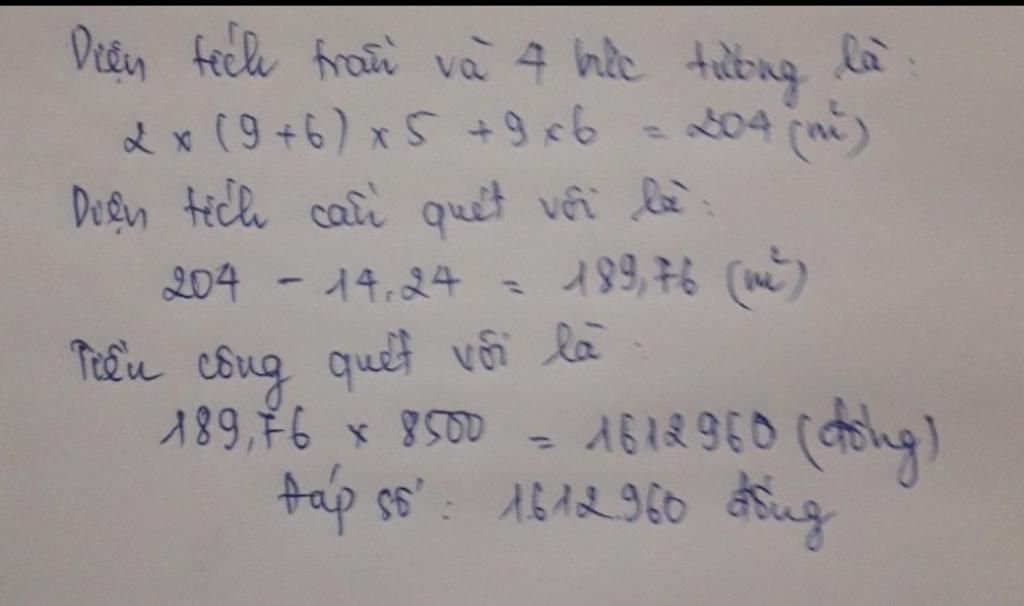 Diện tích trần và 4 bức tường là:
2 x (9+6) x 5 + 9 x 6 = 204 (m²)
Diện tích cần quét vôi là:
204 - 14,24 = 189,76 (m²)
Tiền công quét vôi là:
189,76 x 8500 = 1612960 (đồng)
Đáp số: 1.612.960 đồng